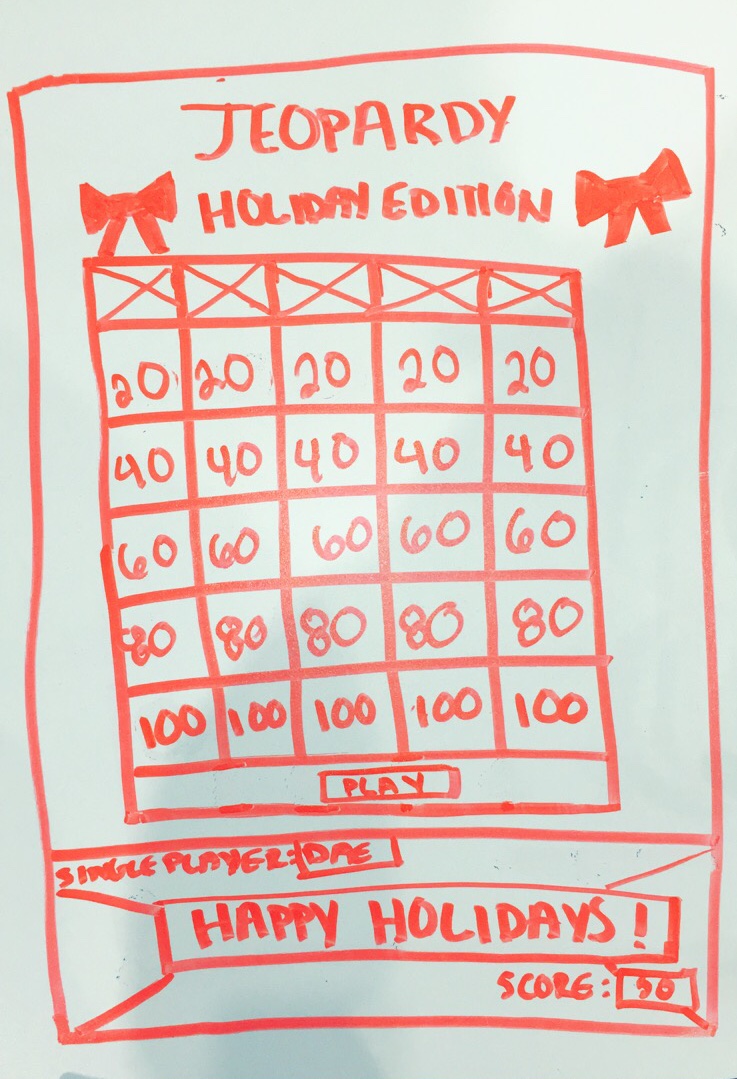 JEOPARDY
HOLIDAY EDITION
20 20 20 20 20
40 40 40 40 40
60 60 60 60 60
80 80 80 80 80
100 100 100 100 100
PLAY
SINGLE PLAYER: DAE
HAPPY HOLIDAYS!
SCORE: 50